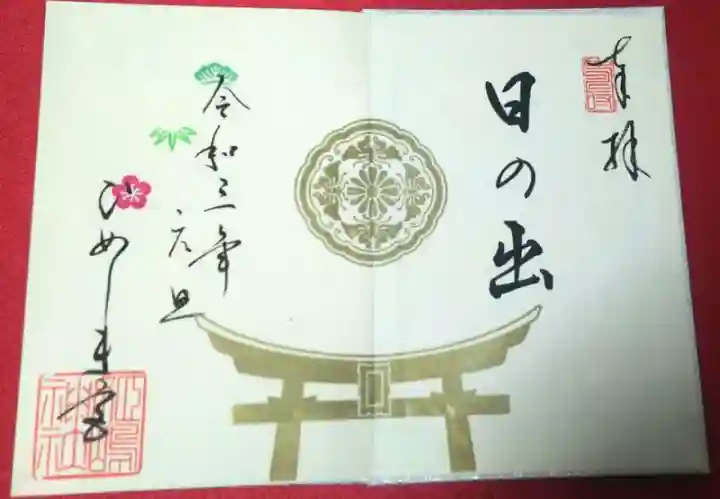 奉拝
日の出
令和三年
元旦
ひめしま宮